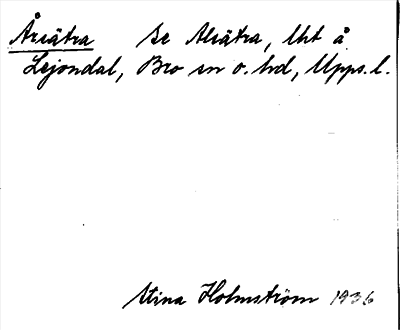 Årsätra Se Alsätra, Uht å
Lejondal, Bro sn o. hd, Upps. l.
Stina Holmström 1936